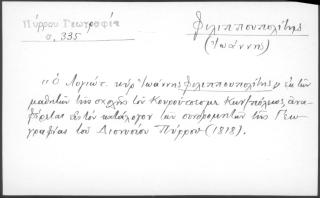 Πύρρου Γεωγραφία
σ. 335
Φιλιππουπολίτης
(Ἰωάννης)
"Ὁ Λογιώτ. κὺρ Ἰωάννης Φιλιππουπολίτης" ἐκ τῶν
μαθητῶν τῆς σχολῆς τοῦ Κουρούτσεσμε Κων/πόλεως, ἀνα-
φέρεται εἰς τὸν κατάλογον τῶν συνδρομητῶν τῆς Γεω-
γραφίας τοῦ Διονυσίου Πύρρου (1818).